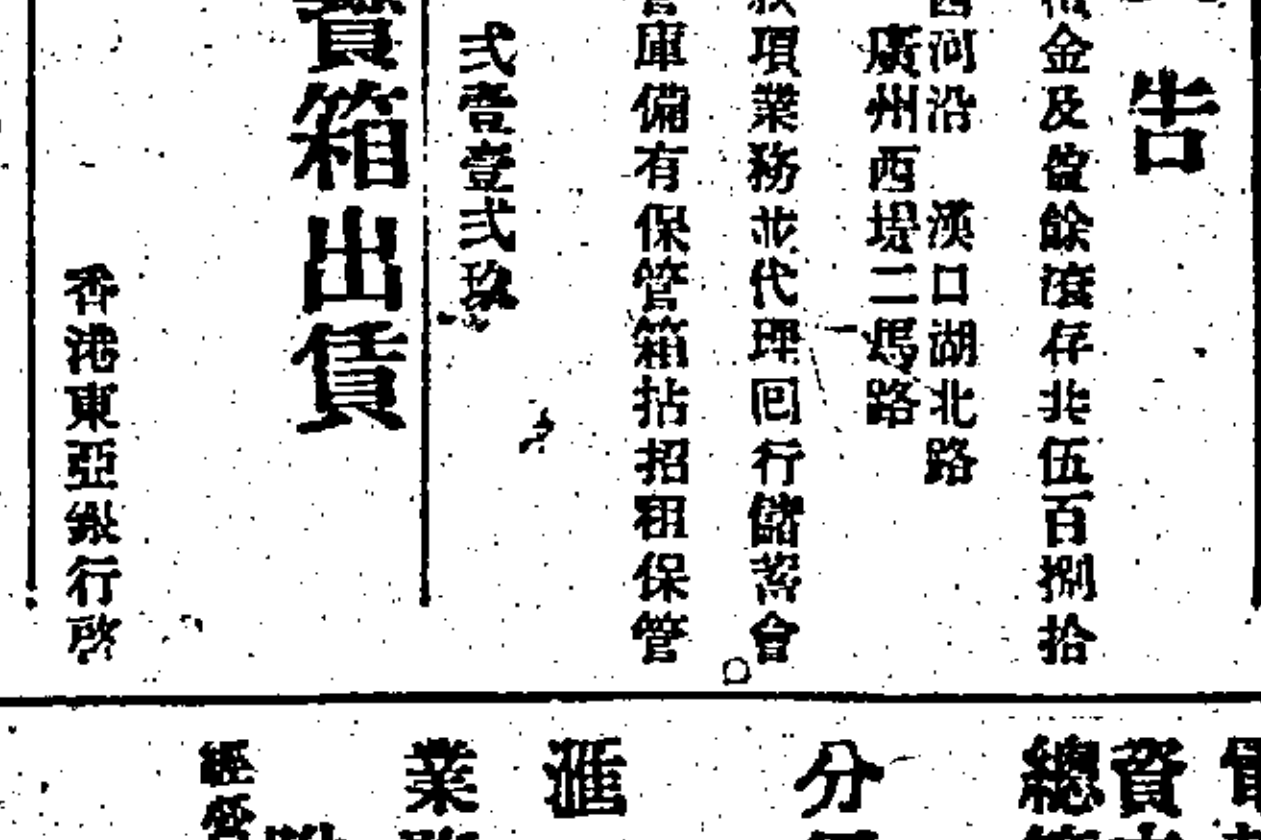 告
金及盈餘滾存共伍百捌拾
河沿 漢口湖北路
廣州西堤二馬路
項業務並代理回行儲蓄會
庫備有保管箱拈招租保管
弍壹壹弍玖
箱出賃
香港東亞銀行啓
資
總
分
滙
業
經營